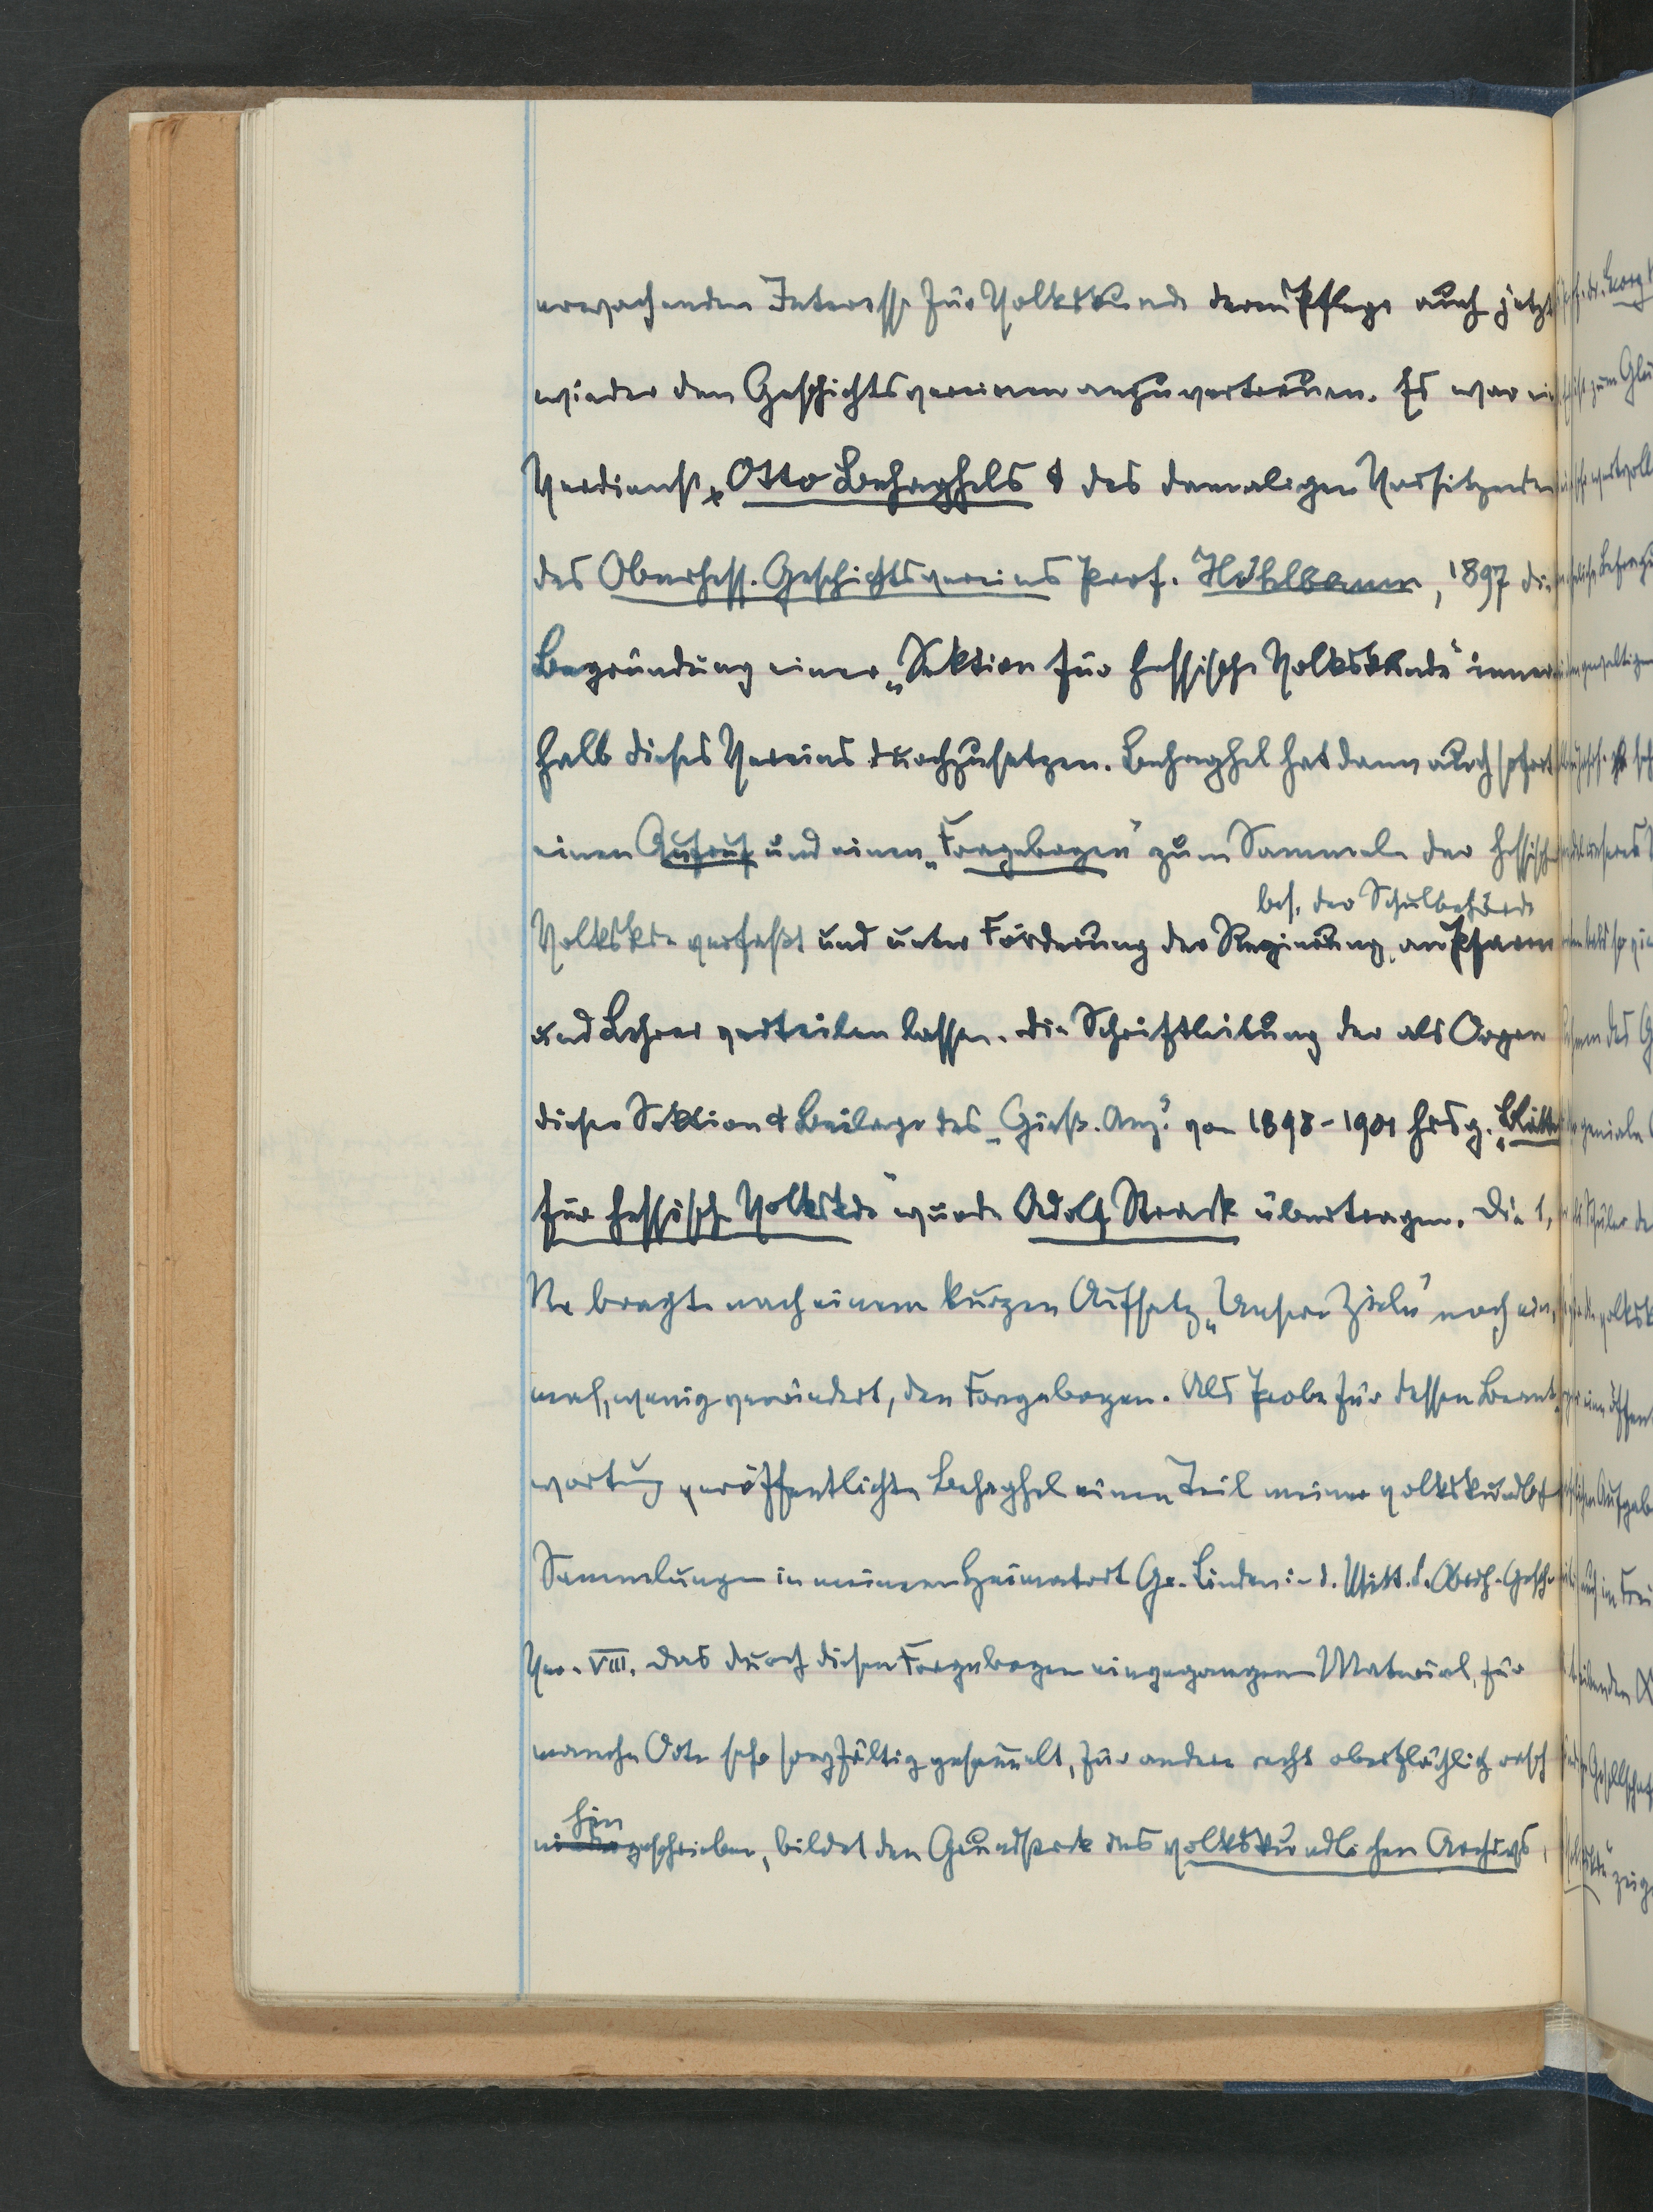 erwachenden Interesse für Volkskunde deren Pflege auch jetzt
wieder den Geschichtsvereinen anzuvertrauen. Es war ein
Verdienst Otto Behaghels & des damaligen Vorsitzenden
des Oberhess. Geschichtsvereins Prof. Höhlbaum, 1897 die
Begründung einer „Sektion für hessische Volkskunde" inner
halb dieses Vereins durchzusetzen. Behaghel hat dann auch sofort
einen Aufruf und einen „Fragebogen" zum Sammeln der hessischen
bes. der Schulbehörde
Volkskde verfaßt und unter Förderung der Regierung, an Pfarrer
und Lehrer verteilen lassen. Die Schriftleitung der als Organ
dieser Sektion & Beilage des „Gieß. Anz." von 1898-1901 hrsg. „Blätter
für hessische Volkskde" wurde Adolf Strack übertragen. Die 1.
Nr bragte nach einem kurzen Aufsatz „Unsere Ziele" noch ein,
mal, wenig verändert, den Fragebogen. Als Probe für dessen Beant,
wortung veröffentlichte Behaghel einen Teil meiner volkskundlch
Sammlungen in meinem Heimatort Gr. Linden in d. Mitt. d. Oberh. Gesch.
Ver. VIII. Das durch diesen Fragebogen eingegangene Material, für
manche Orte sehr sorgfältig gesammelt, für andere recht oberflächlich rasch
hin
niedergeschrieben, bildet den Grundstock des volkskundlichen Archivs,